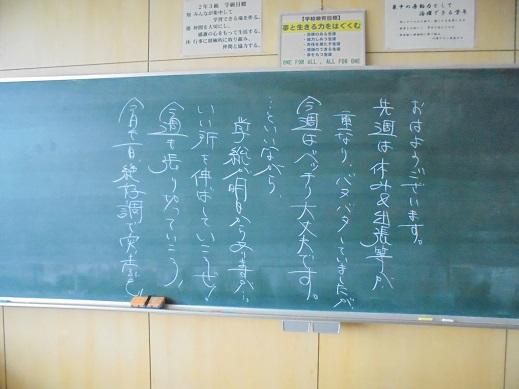 おはようございます。
先週は休み&出張等が
重なり、バタバタしていましたが、
今週はバッチリ大丈夫です。
…といいながら、
学総が明日からありますが、
いい所を伸ばしていこうぜ!
今週も張り切っていこう!
今日も一日、絶好調で
2年3組 学級目標
みんなが集中して
学習できる場を作る。
仲間を大切にし、
感謝の心をもって生活する。
行事に積極的に取り組み、
仲間と協力する。
【学校教育目標】
夢と生きる力をはぐくむ
ONE FOR ALL, ALL FOR ONE